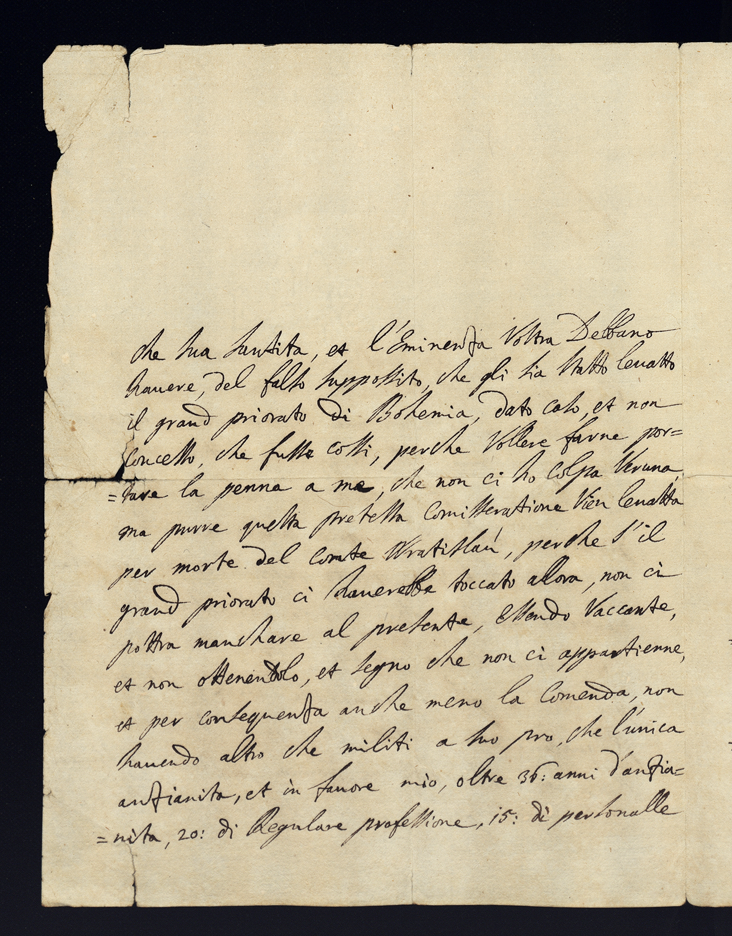 che sua santita, et l'Eminenza Vostra Debbano
hauere, del falso suppossito, che gli sia statto leuatto
il grand priorato di Bohemia, dato caso, et non
concesso, che fusse cossi, perche Vollese farne por=
=tare la penna a me, che non ci ho colpa Veruna,
ma purre questa pretessa Comisseratione Vien leuatta
per morte del Conte Wratislau, perche s'il
grand priorato ci hauerebbe toccato allora, non ci
pottra manchare al presente, essendo Vaccante,
et non ottenendolo, et segno che non ci appartienne,
et per consequenza anche meno la Comenda, non
hauendo altro che militi a suo pro, che l'unica
anzianita, et in fauore mio, oltre 36: anni d'anzia=
=nita, 20: di Regulare professione, 15: di personalle